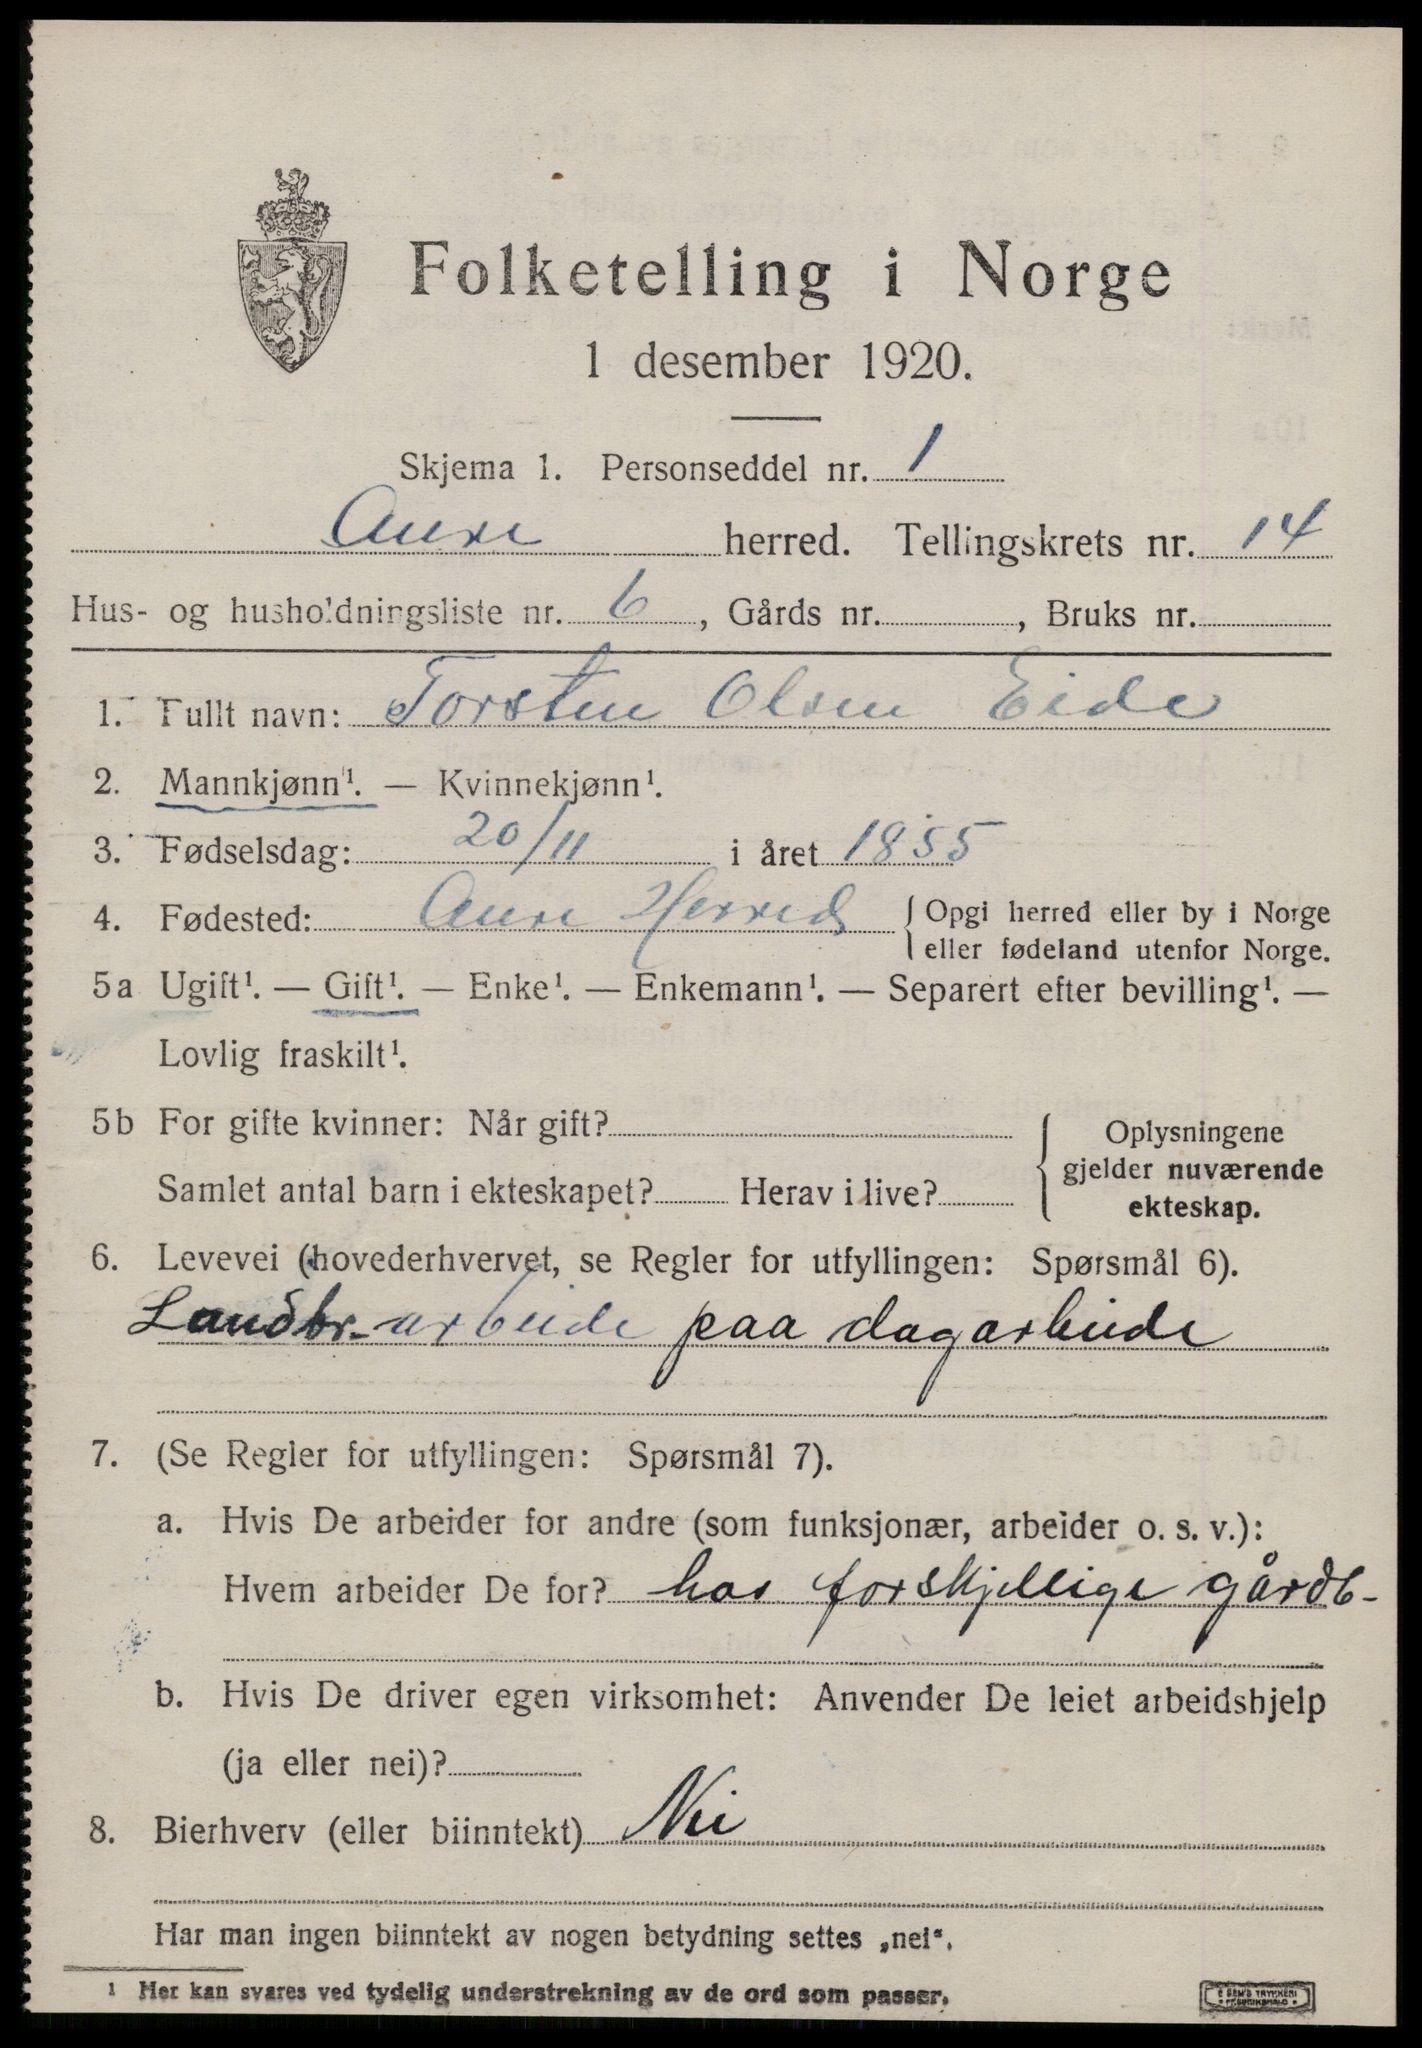 Folketelling i Norge
1 desember 1920.
Skjema 1. Personseddel nr. 1
Aure herred. Tellingskrets nr. 14
Hus- og husholdningsliste nr. 6, Gårds nr. , Bruks nr.
1. Fullt navn: Torsten Olsen Eide
2. Mannkjønn¹. — Kvinnekjønn¹.
3. Fødselsdag: 20/11 i året 1855
4. Fødested: Aure Herred { Opgi herred eller by i Norge
eller fødeland utenfor Norge.
5a Ugift¹. — Gift¹. — Enke¹. — Enkemann¹. — Separert efter bevilling¹. —
Lovlig fraskilt¹.
5b For gifte kvinner: Når gift?
Samlet antal barn i ekteskapet? Herav i live?
{ Oplysningene
gjelder nuværende
ekteskap.
6. Levevei (hovederhvervet, se Regler for utfyllingen: Spørsmål 6).
Landbr.-arbeide paa dagarbeide
7. (Se Regler for utfyllingen: Spørsmål 7).
a. Hvis De arbeider for andre (som funksjonær, arbeider o. s. v.):
Hvem arbeider De for? hos forskjellige gårdb-
b. Hvis De driver egen virksomhet: Anvender De leiet arbeidshjelp
(ja eller nei)?
8. Bierhverv (eller biinntekt) Nei
Har man ingen biinntekt av nogen betydning settes „nei“.
¹ Her kan svares ved tydelig understrekning av de ord som passer.